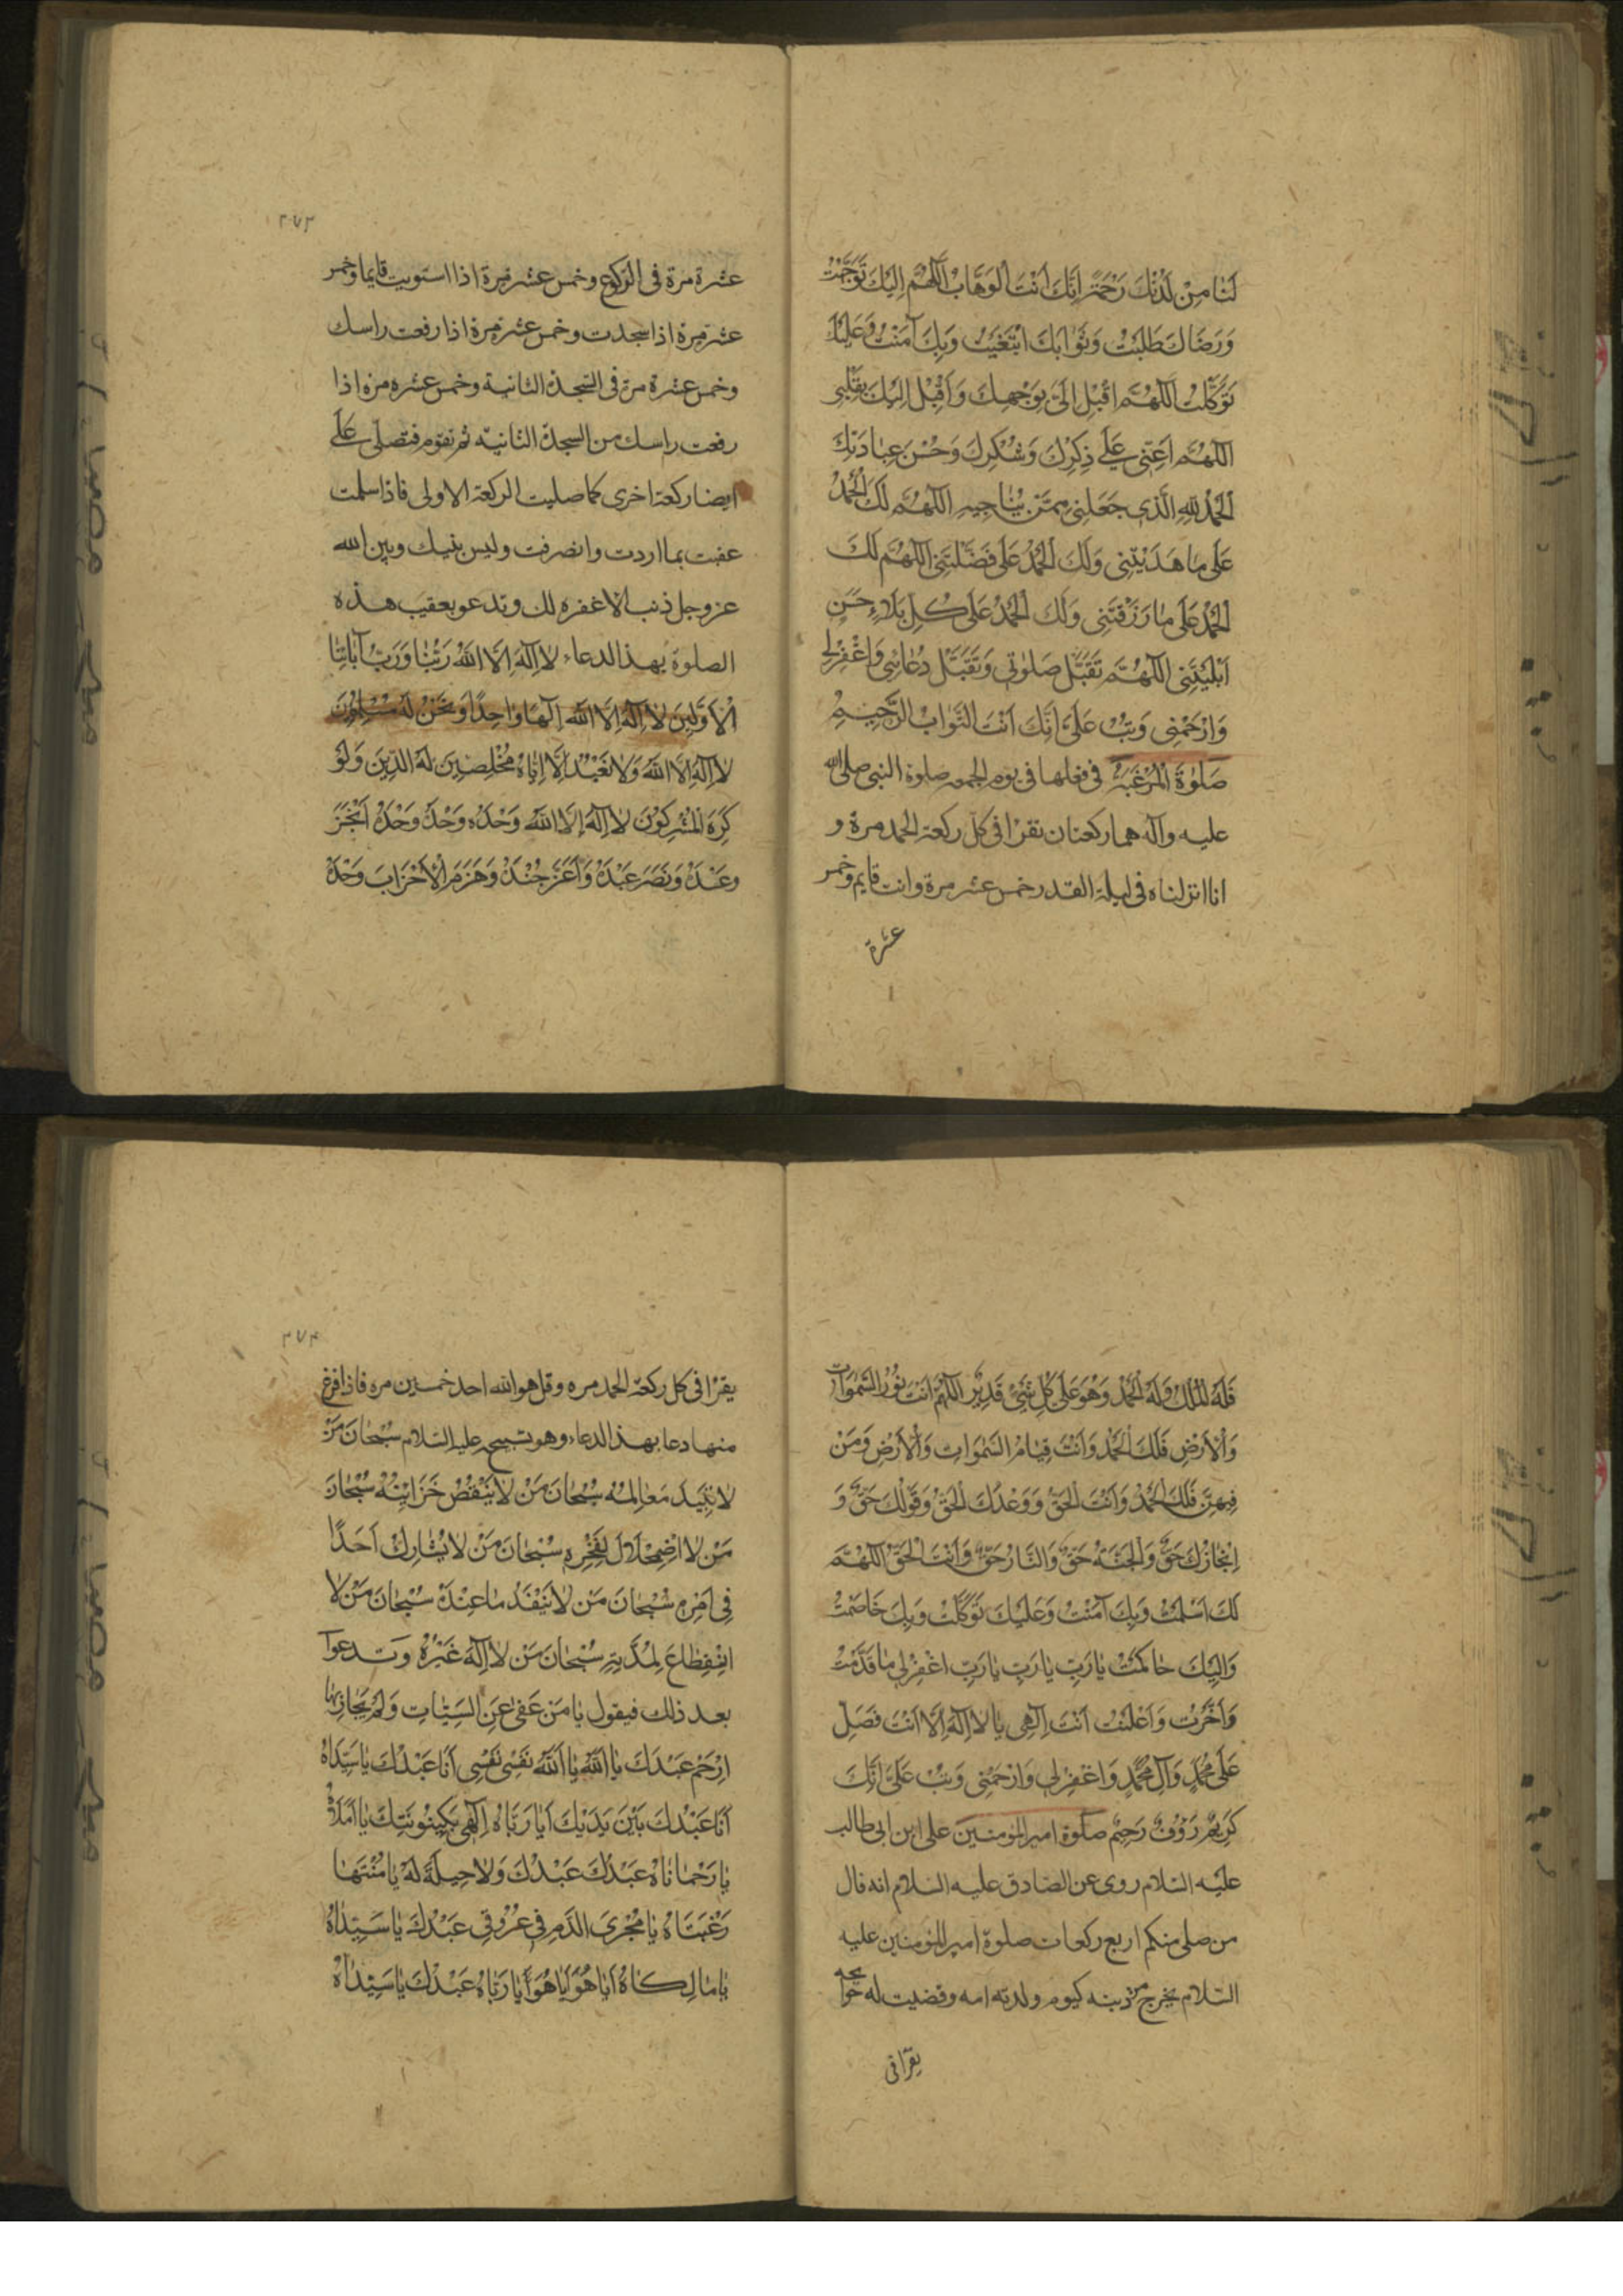 لَنَا مِنْ لَدُنْكَ رَحْمَةً اِنَّكَ اَنْتَ الْوَهَّابُ اَللّٰهُمَّ اِلَيْكَ تَوَجَّهْتُ
وَرِضَاكَ طَلَبْتُ وَثَوَابَكَ ابْتَغَيْتُ وَبِكَ آمَنْتُ وَعَلَيْكَ
تَوَكَّلْتُ اَللّٰهُمَّ اَقْبِلْ اِلَىَّ بِوَجْهِكَ وَاَقْبِلْ اِلَيْكَ بِقَلْبِى
اَللّٰهُمَّ اَعِنِّى عَلٰى ذِكْرِكَ وَشُكْرِكَ وَحُسْنِ عِبَادَتِكَ
اَلْحَمْدُ لِلّٰهِ الَّذِى جَعَلَنِى مِمَّنْ يُنَاجِيهِ اَللّٰهُمَّ لَكَ الْحَمْدُ
عَلٰى مَا هَدَيْتَنِى وَلَكَ الْحَمْدُ عَلٰى فَضَّلْتَنِى اَللّٰهُمَّ لَكَ
الْحَمْدُ عَلٰى مَا رَزَقْتَنِى وَلَكَ الْحَمْدُ عَلٰى كُلِّ بَلَاءٍ حَسَنٍ
اَبْلَيْتَنِى اَللّٰهُمَّ تَقَبَّلْ صَلٰوتِى وَتَقَبَّلْ دُعَائِى وَاغْفِرْ لِى
وَارْحَمْنِى وَتُبْ عَلَىَّ اِنَّكَ اَنْتَ التَّوَّابُ الرَّحِيمُ
صَلٰوةُ الْمُرَغَّبَةُ فى فعلها فى يوم الجمعه صلوة النبى صلى الله
عليه وآله هما ركعتان تقرأ فى كل ركعة الحمد مرة و
انا انزلناه فى ليلة القدر خمس عشر مرة وانت قايم وخمس
عشرة
٢٧٣
عشرة مرة فى الركوع وخمس عشر مرة اذا استويت قايما وخمس
عشر مرة اذا سجدت وخمس عشر مرة اذا رفعت راسك
وخمس عشرة مرة فى السجدة الثانية وخمس عشره مرة اذا
رفعت راسك من السجدة الثانيه ثم تقوم فتصلى على
ايضا ركعة اخرى كما صليت الركعة الاولى فاذا سلمت
عقبت بما اردت وانصرفت وليس بنيك وبين الله
عز وجل ذنب الا غفره لك وتدعو بعقيب هذه
الصلوة بهذ الدعاء لَا اِلٰهَ اِلَّا اللّٰهُ رَبُّنَا وَرَبُّ آبَائِنَا
الْاَوَّلِينَ لَا اِلٰهَ اِلَّا اللّٰهُ اِلٰهًا وَاحِدًا وَنَحْنُ لَهُ مُسْلِمُونَ
لَا اِلٰهَ اِلَّا اللّٰهُ وَلَا نَعْبُدُ اِلَّا اِيَّاهُ مُخْلِصِينَ لَهُ الدِّينَ وَلَوْ
كَرِهَ الْمُشْرِكُونَ لَا اِلٰهَ اِلَّا اللّٰهُ وَحْدَهُ وَحْدَهُ وَحْدَهُ اَنْجَزَ
وَعْدَهُ وَنَصَرَ عَبْدَهُ وَاَعَزَّ جُنْدَهُ وَهَزَمَ الْاَحْزَابَ وَحْدَهُ
فَلَهُ الْمُلْكُ وَلَهُ الْحَمْدُ وَهُوَ عَلٰى كُلِّ شَىْءٍ قَدِيرٌ اَللّٰهُمَّ اَنْتَ نُورُ السَّمٰوَاتِ
وَالْاَرْضِ فَلَكَ الْحَمْدُ وَاَنْتَ قِيَامُ السَّمٰوَاتِ وَالْاَرْضِ وَمَنْ
فِيهِنَّ فَلَكَ الْحَمْدُ وَاَنْتَ الْحَقُّ وَوَعْدُكَ الْحَقُّ وَقَوْلُكَ حَقٌّ وَ
اِنْجَازُكَ حَقٌّ وَالْجَنَّةُ حَقٌّ وَالنَّارُ حَقٌّ وَاَنْتَ الْحَقُّ اَللّٰهُمَّ
لَكَ اَسْلَمْتُ وَبِكَ آمَنْتُ وَعَلَيْكَ تَوَكَّلْتُ وَبِكَ خَاصَمْتُ
وَاِلَيْكَ حَاكَمْتُ يَا رَبِّ يَا رَبِّ يَا رَبِّ اغْفِرْ لِى مَا قَدَّمْتُ
وَاَخَّرْتُ وَاَعْلَنْتُ اَنْتَ اِلٰهِى يَا لَا اِلٰهَ اِلَّا اَنْتَ فَصَلِّ
عَلٰى مُحَمَّدٍ وَآلِ مُحَمَّدٍ وَاغْفِرْ لِى وَارْحَمْنِى وَتُبْ عَلَىَّ اِنَّكَ
كَرِيمٌ رَؤُفٌ رَحِيمٌ صلوة امير المؤمنين على ابن ابى طالب
عليه السلام روى عن الصادق عليه السلام انه قال
من صلى منكم اربع ركعات صلوة امير المؤمنين عليه
السلام يخرج من ذنبه كيوم ولدته امه وقضيت له حوائجه
يقرأ فى
٢٧٤
يقرأ فى كل ركعة الحمد مره وقل هو الله احد خمسين مره فاذا فرغ
منها دعا بهذ الدعاء وهو تسبيحه عليه السلام سُبْحَانَ مَنْ
لَا تَبِيدُ مَعَالِمُهُ سُبْحَانَ مَنْ لَا يَنْقُصُ خَزَائِنُهُ سُبْحَانَ
مَنْ لَا اضْمِحْلَالَ لِفَخْرِهِ سُبْحَانَ مَنْ لَا يُشَارِكُ اَحَدًا
فِى اَمْرِهِ سُبْحَانَ مَنْ لَا يَنْفَدُ مَا عِنْدَهُ سُبْحَانَ مَنْ لَا
انْقِطَاعَ لِمُدَّتِهِ سُبْحَانَ مَنْ لَا اِلٰهَ غَيْرُهُ وتدعوا
بعد ذلك فيقول يَا مَنْ عَفٰى عَنِ السَّيِّئَاتِ وَلَمْ يُجَازِ بِهَا
اِرْحَمْ عَبْدَكَ يَا اَللّٰهُ يَا اَللّٰهُ نَفْسِى نَفْسِى اَنَا عَبْدُكَ يَا سَيِّدَاهُ
اَنَا عَبْدُكَ بَيْنَ يَدَيْكَ اَيَا رَبَّاهُ اِلٰهِى بِكَيْنُونَتِكَ يَا اَمَلَاهُ
يَا رَحْمَانَاهُ عَبْدُكَ عَبْدُكَ وَلَا حِيلَةَ لَهُ يَا مُنْتَهَا
رَغْبَتَاهُ يَا مُجْرِىَ الدَّمِ فِى عُرُوقِى عَبْدُكَ يَا سَيِّدَاهُ
يَا مَالِكَاهُ اَيَا هُوَ اَيَا هُوَ اَيَا رَبَّاهُ عَبْدُكَ يَا سَيِّدَاهُ